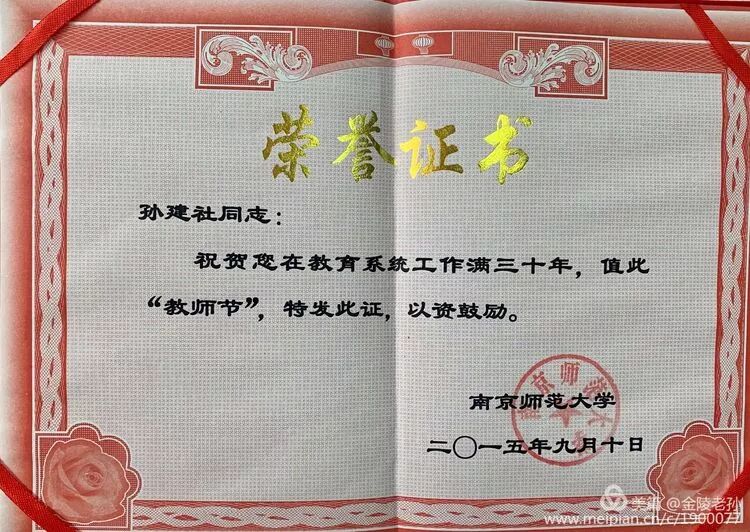 荣誉证书
孙建社同志：
祝贺您在教育系统工作满三十年，值此
“教师节”，特发此证，以资鼓励。
南京师范大学
南京师范大学
二〇一五年九月十日
美篇 @金陵老孙
www.meipian.cn/c/1900077